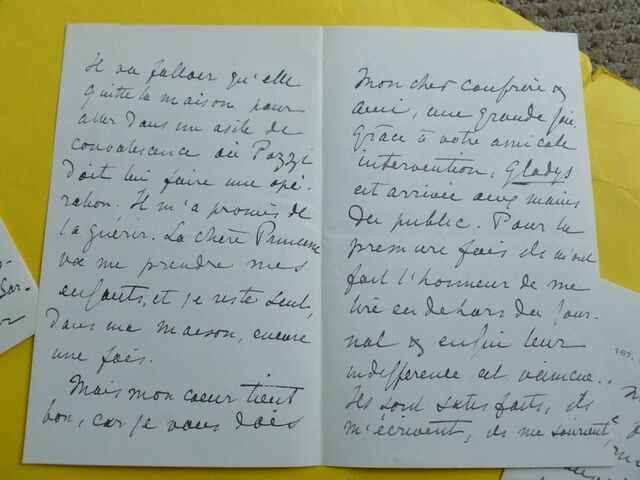 Il va falloir qu'elle
quitte la maison pour
aller dans un asile de
convalescence où Pozzi
doit lui faire une opé-
ration. Il m'a promis de
la guérir. La chère Princesse
va me prendre mes
enfants, et je reste seul,
dans ma maison, encore
une fois.
Mais mon coeur tient
bon, car je vous dois
Mon cher confrère &
ami, une grande joie.
Grâce à votre amicale
intervention, Gladys
est arrivée aux mains
du public. Pour la
première fois ils m'ont
fait l'honneur de me
lire en dehors du Jour-
nal & enfin leur
indifférence est vaincue.
Ils sont satisfaits, ils
m'écrivent, ils me sourient,
187.